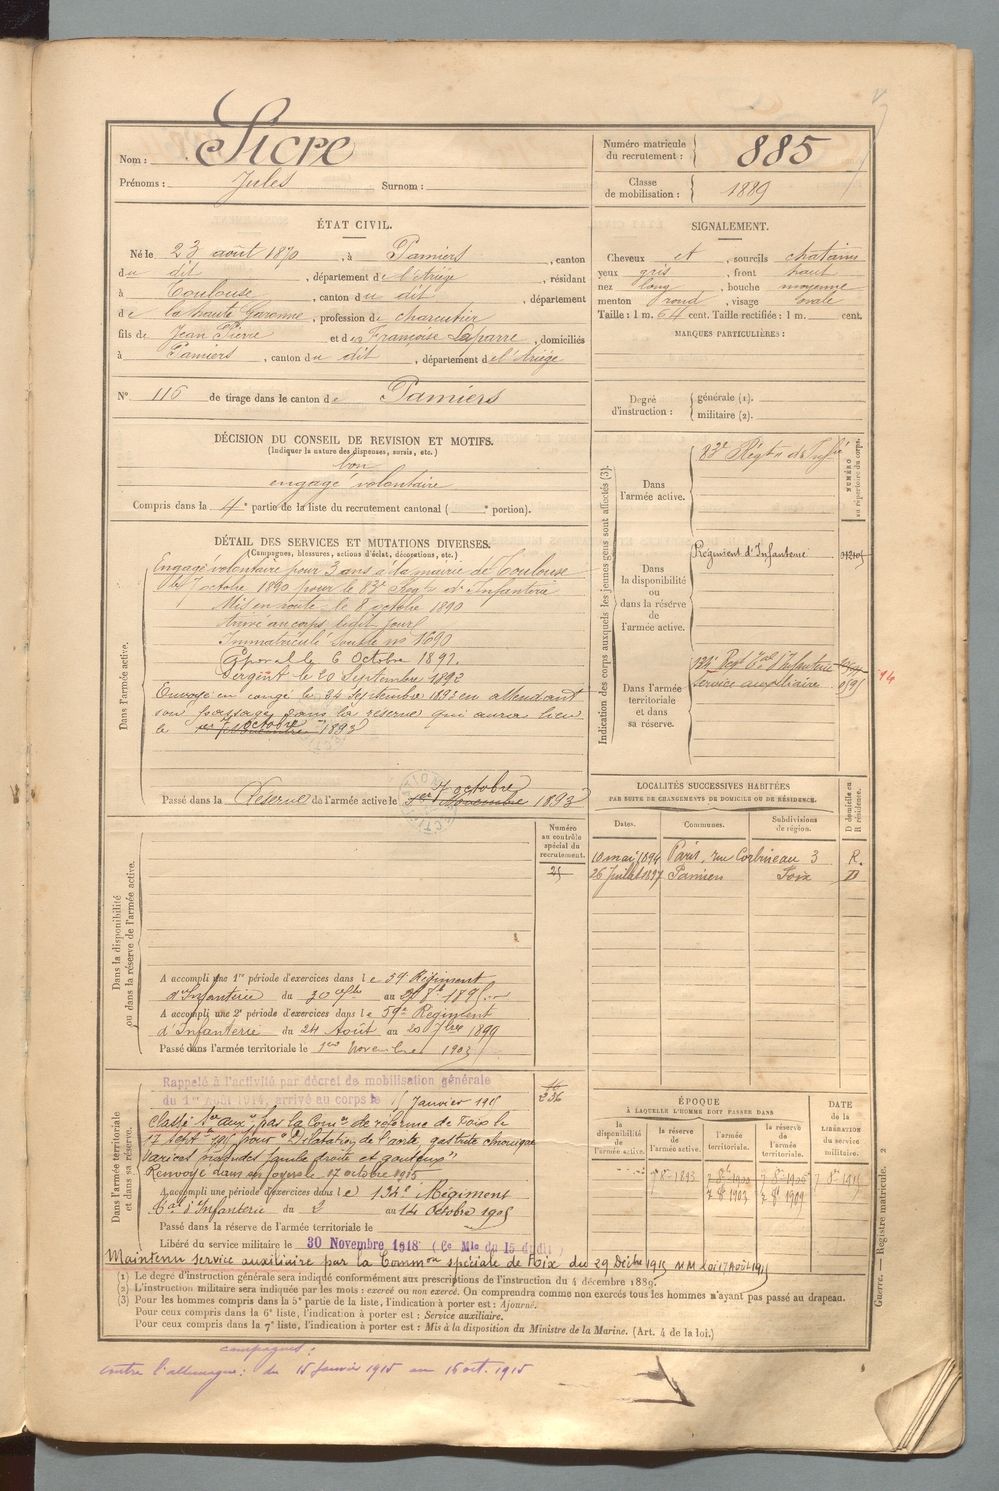 Nom : Sicre
Prénoms : Jules Surnom :
Numéro matricule du recrutement : 885
Classe de mobilisation : 1889
ÉTAT CIVIL.
Né le 23 août 1870, à Pamiers, canton
du dit, département de l'Ariège, résidant
à Toulouse, canton du dit, département
de la haute Garonne, profession de charcutier
fils de Jean Pierre et de Françoise Laparre, domiciliés
à Pamiers, canton du dit, département de l'Ariège
N° 116 de tirage dans le canton de Pamiers
SIGNALEMENT.
Cheveux et, sourcils chatains
yeux gris, front haut
nez long, bouche moyenne
menton rond, visage ovale
Taille : 1 m. 64 cent. Taille rectifiée : 1 m. cent.
MARQUES PARTICULIÈRES :
Degré d'instruction : générale (1).
militaire (2).
DÉCISION DU CONSEIL DE REVISION ET MOTIFS.
(Indiquer la nature des dispenses, sursis, etc.)
bon
engagé volontaire
Compris dans la 4e partie de la liste du recrutement cantonal ( e portion).
DÉTAIL DES SERVICES ET MUTATIONS DIVERSES.
(Campagnes, blessures, actions d'éclat, décorations, etc.)
Dans l'armée active.
Engagé volontaire pour 3 ans à la mairie de Toulouse
le 7 octobre 1890 pour le 83e Régt d'Infanterie
Mis en route le 8 octobre 1890
Arrivé au corps ledit jour
Immatriculé sous le no 1690
Caporal le 6 Octobre 1891.
Sergent le 20 Septembre 1892
Envoyé en congé le 24 Septembre 1893 en attendant
son passage dans la réserve qui aura lieu
le octobre 1893
Passé dans la Réserve de l'armée active le 7 octobre 1893
Indication des corps auxquels les jeunes gens sont affectés (3).
NUMÉRO au répertoire du corps.
Dans l'armée active.
83e Régt d'Infie
Dans la disponibilité ou dans la réserve de l'armée active.
Régiment d'Infanterie
Dans l'armée territoriale et dans sa réserve.
134e Régt Tal d'Infanterie
Service auxiliaire
LOCALITÉS SUCCESSIVES HABITÉES
PAR SUITE DE CHANGEMENTS DE DOMICILE OU DE RÉSIDENCE.
D domicile ou R résidence.
Dates. Communes. Subdivisions de région.
10 mai 1894 Paris, rue Corbineau 3 R.
26 Juillet 1897 Pamiers Foix D
Numéro au contrôle spécial du recrutement.
25
Dans la disponibilité ou dans la réserve de l'armée active.
A accompli une 1re période d'exercices dans le 59e Régiment
d'Infanterie du 30 au 1895
A accompli une 2e période d'exercices dans le 59e Régiment
d'Infanterie du 24 Août au 20 7bre 1899
Passé dans l'armée territoriale le 1er Novembre 1903
Dans l'armée territoriale et dans sa réserve.
Rappelé à l'activité par décret de mobilisation générale
du 1er Août 1914, arrivé au corps le 15 Janvier 1915
Classé Ser aux. par la Comon de réforme de Foix le
17 Septbre 1915 pour "Dilatation de l'aorte, gastrite chronique
varices jambe droite et gouteux"
Renvoyé dans ses foyers le 17 octobre 1915
A accompli une période d'exercices dans le 134e Régiment
Tal d'Infanterie du 2 au 14 Octobre 1905
Passé dans la réserve de l'armée territoriale le
Libéré du service militaire le 30 Novembre 1918 (Ce Mle du 15 dudit)
Maintenu service auxiliaire par la Common spéciale de Foix du 29 Décbre 1915 Loi 17 Août 1915
ÉPOQUE
À LAQUELLE L'HOMME DOIT PASSER DANS
la disponibilité de l'armée active.
la réserve de l'armée active.
l'armée territoriale.
la réserve de l'armée territoriale.
DATE de la LIBÉRATION du service militaire.
7 8bre 1893
7 8bre 1903
7 8bre 1909
(1) Le degré d'instruction générale sera indiqué conformément aux prescriptions de l'instruction du 4 décembre 1889.
(2) L'instruction militaire sera indiquée par les mots : exercé ou non exercé. On comprendra comme non exercés tous les hommes n'ayant pas passé au drapeau.
(3) Pour les hommes compris dans la 5e partie de la liste, l'indication à porter est : Ajourné.
Pour ceux compris dans la 6e liste, l'indication à porter est : Service auxiliaire.
Pour ceux compris dans la 7e liste, l'indication à porter est : Mis à la disposition du Ministre de la Marine. (Art. 4 de la loi.)
Guerre. — Registre matricule. 2
campagnes :
contre l'allemagne : du 15 Janvier 1915 au 16 oct. 1915